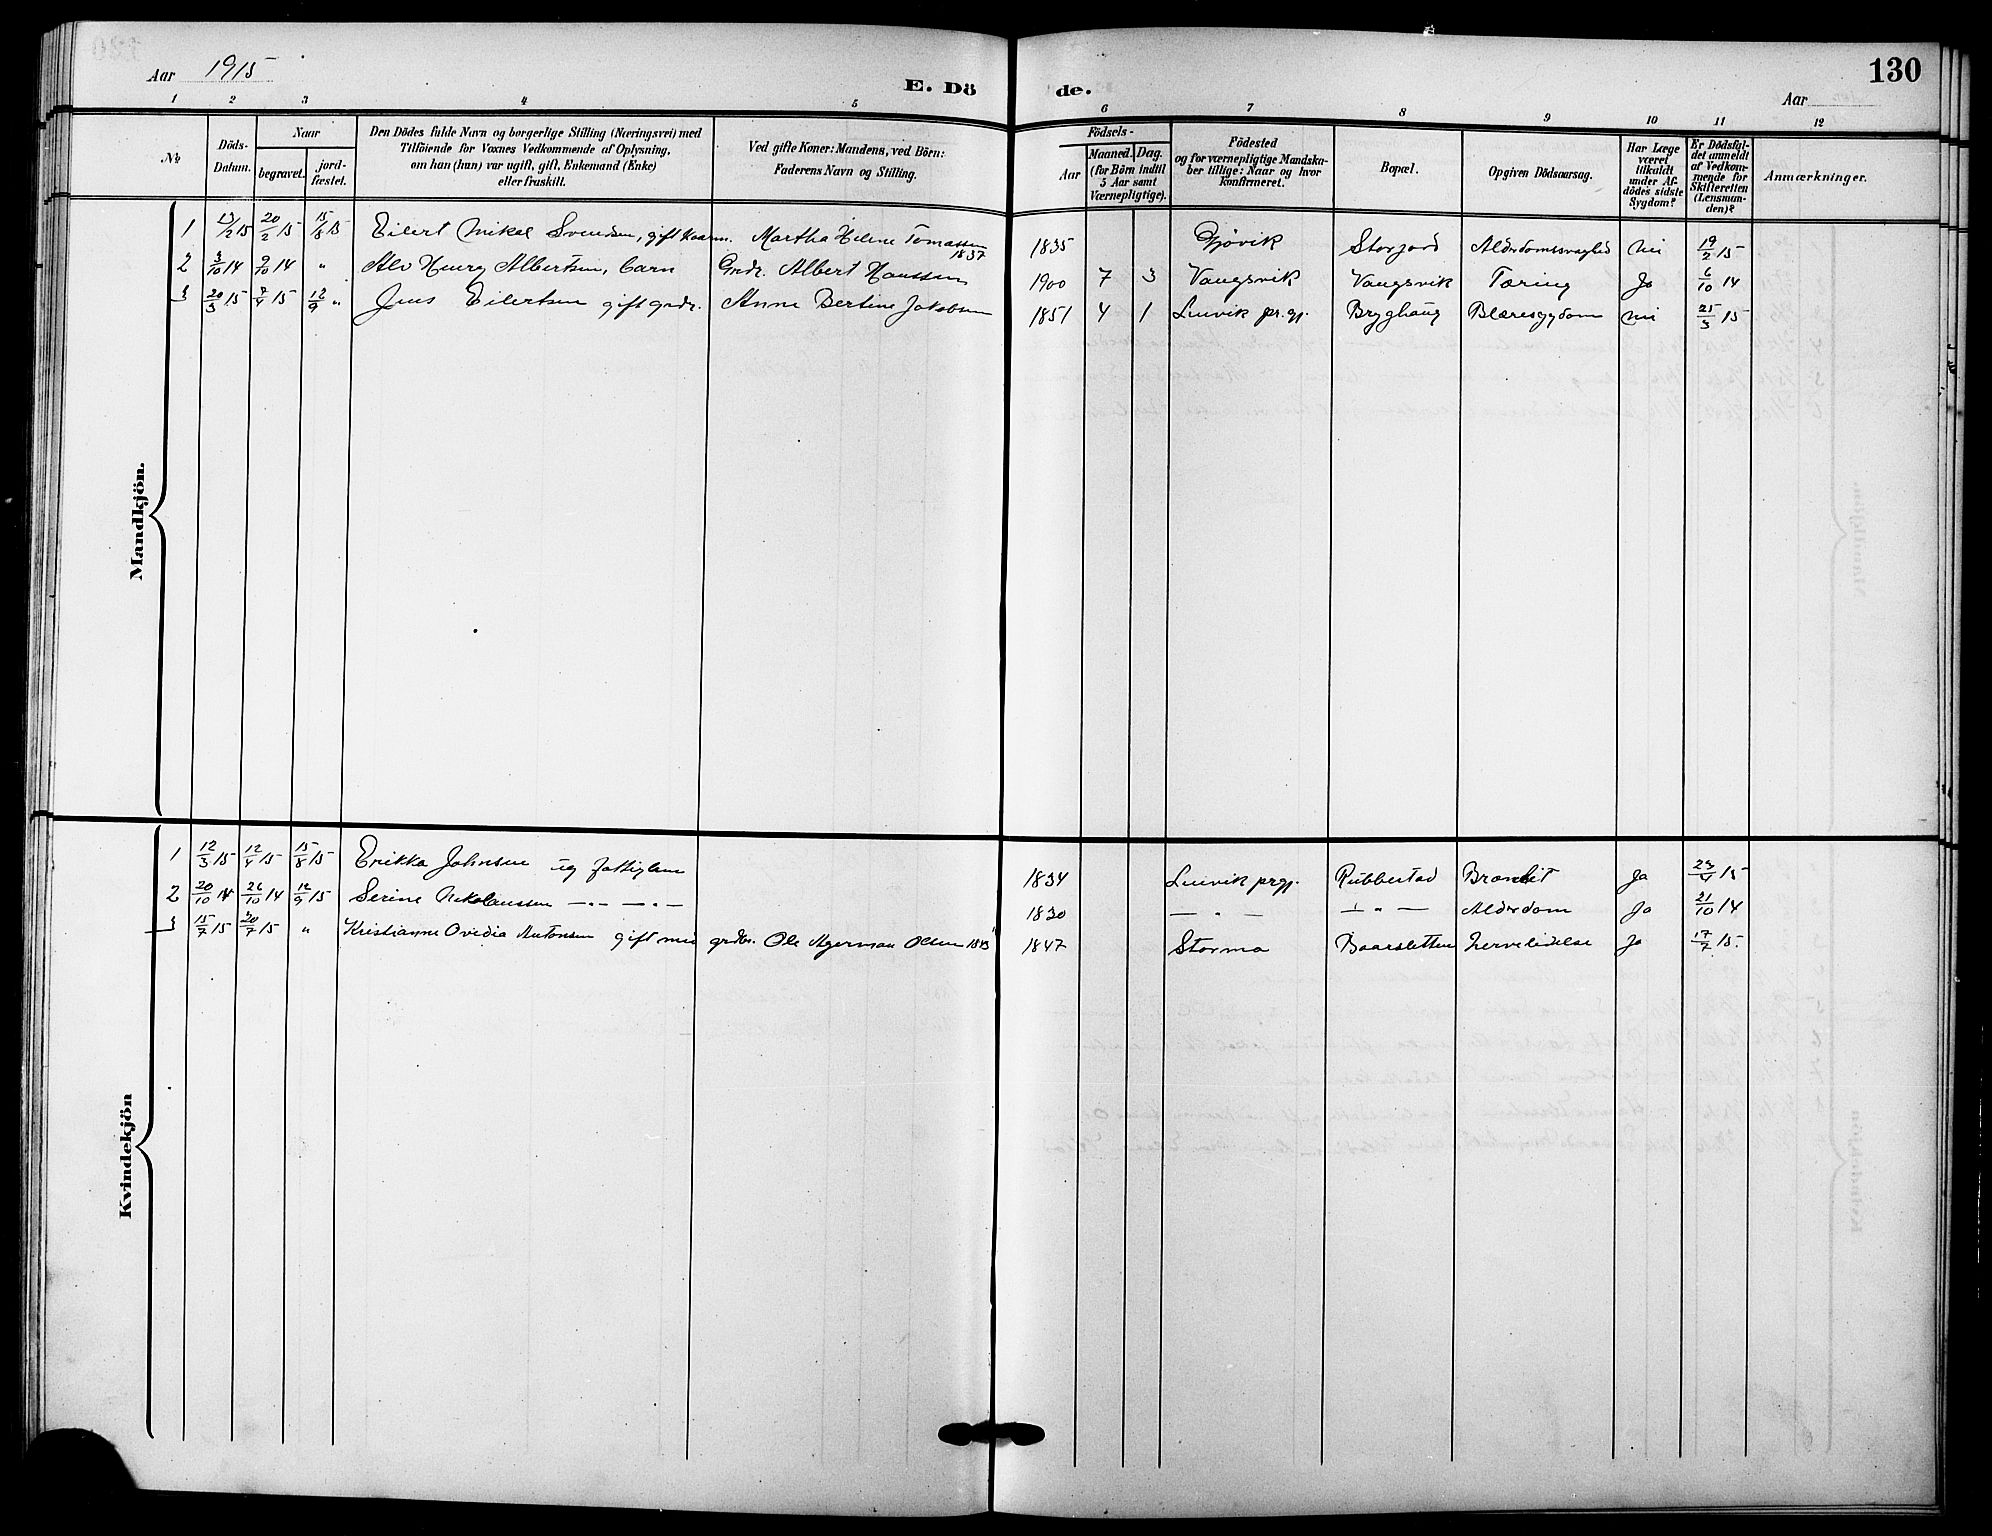 Aar 1915
E. Dö
de.
130
Aar
1 2 3 4 5 6 7 8 9 10 11 12
No
Döds-Datum.
Naar
begravet.
jord-fæstet.
Den Dödes fulde Navn og borgerlige Stilling (Næringsvei) med
Tilföiende for Voxnes Vedkommende af Oplysning,
om han (hun) var ugift, gift, Enkemand (Enke)
eller fraskilt.
Ved gifte Koner: Mandens, ved Börn:
Faderens Navn og Stilling.
Födsels-
Aar
Maaned. Dag.
(for Börn indtil
5 Aar samt
Værnepligtige).
Födested
og for værnepligtige Mandska-
ber tillige: Naar og hvor
konfirmeret.
Bopæl.
Opgiven Dödsaarsag.
Har Læge
været
tilkaldt
under Af-
dödes sidste
Sygdom?
Er Dödsfal-
det anmeldt
af Vedkom-
mende for
Skifteretten
(Lensman-
den)?
Anmærkninger.
Mandkjön.
1 13/2 15 20/2 15 15/8 15 Eilert Mikal Svendsen, gift Martha Helene Tomassen 1837 1835 Gjövik Storjord Alderdomssvaghed nei 19/2 15
2 3/10 14 9/10 14 " Alv Henry Albertsen, barn Grdr. Albert Hanssen 1900 7 3 Vangsvik Vangsvik Tæring Ja 6/10 14
3 20/3 15 7/4 15 12/9 " Jens Eilertsen gift grdr. Anne Bertine Jakobsen 1851 4 1 Lenvik pr.gj. Bryghaug Blæresygdom nei 25/3 15
Kvindekjön
1 12/3 15 12/4 15 15/8 15 Erikka Johnsen ug fattiglem 1834 Lenvik prgj. Rubbestad Ja 15
2 20/10 14 26/10 14 12/9 15 Serine Nikolaussen —"— —"— 1830 — " — — " — Alderdom Ja 21/10 14
3 15/7 15 20/7 15 " Kristianne Ovedia Antonsen gift med grdbr. Ole Olsen 1843 1847 Stormo Baarsletten Nervelidelse Ja 17/7 15.